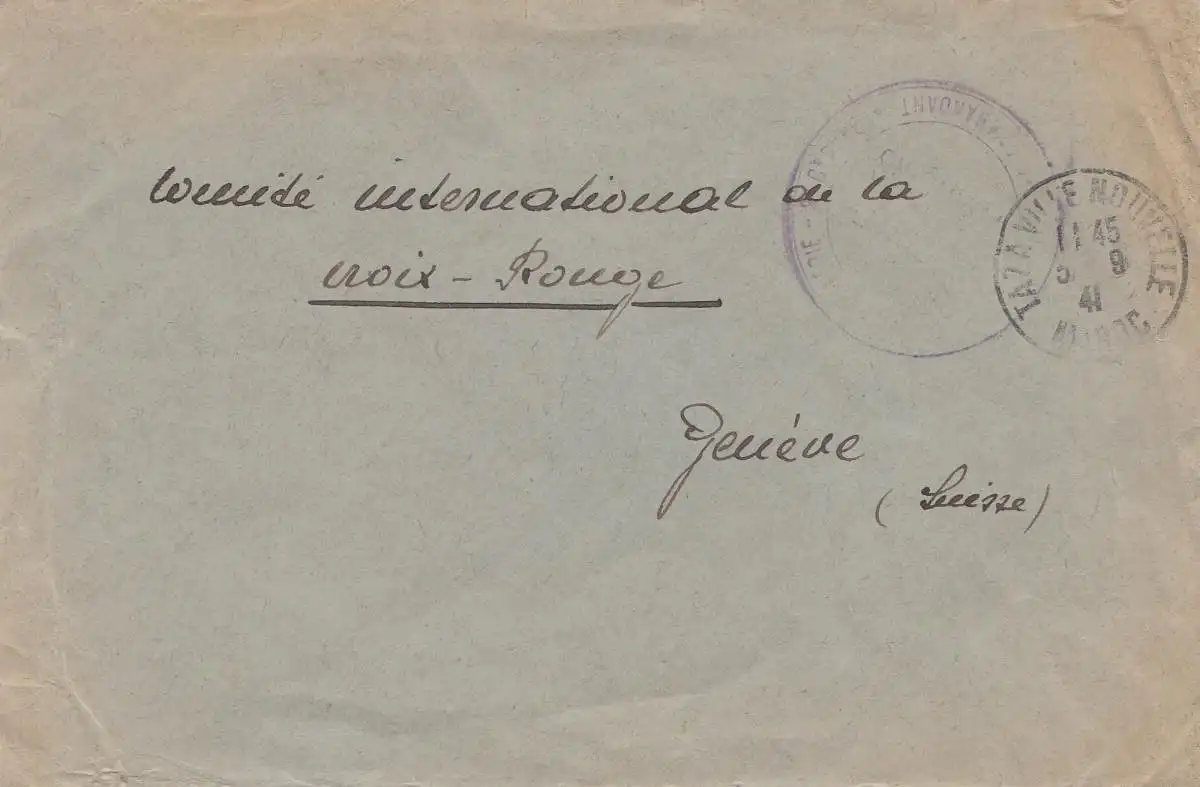 Comité international de la
Croix-Rouge
Genève
(Suisse)
COMMANDANT
TAZA VILLE NOUVELLE
11 45
9
41
MAROC